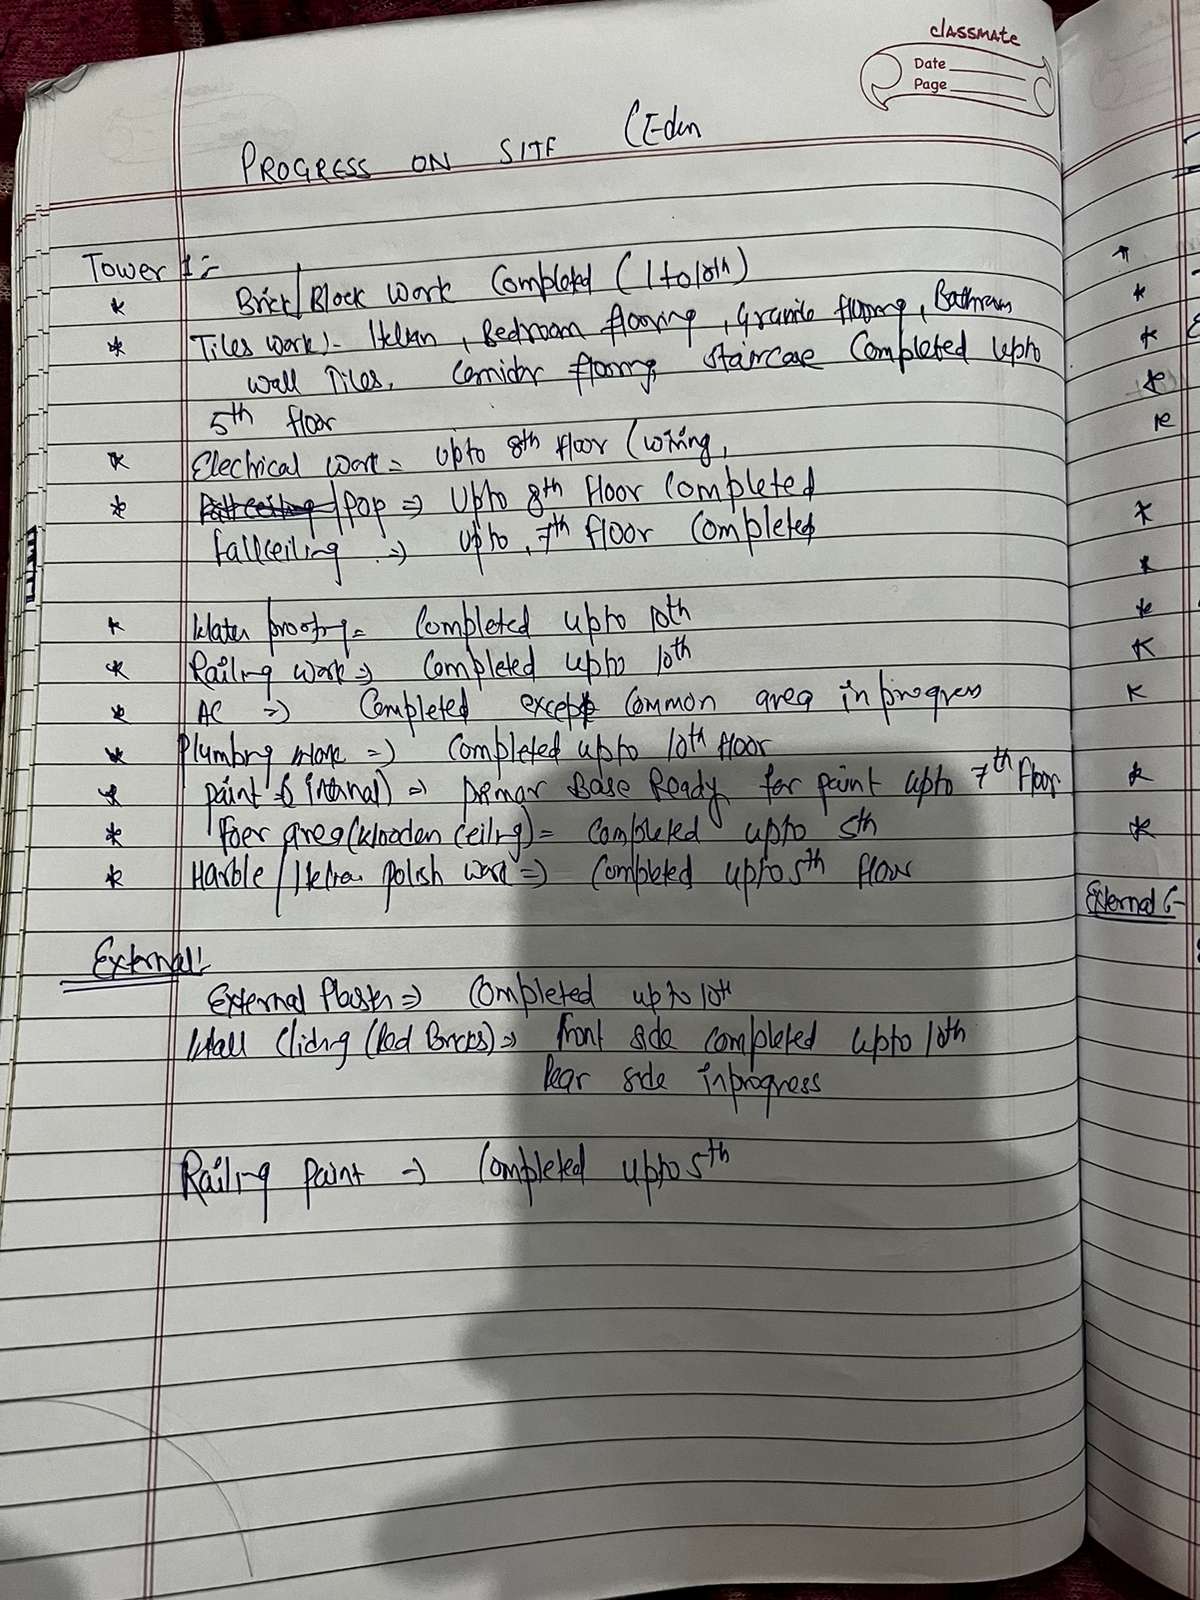 classmate
Date
Page
PROGRESS ON SITE (Eden
Tower 1:-
* Brick/Block work Completed (1 to 10th)
* Tiles work:- Italian, Bedroom flooring, Granite flooring, Bathroom
wall Tiles, Corridor flooring, staircase Completed upto
5th floor
* Electrical work = upto 8th floor (wiring,
* /POP => Upto 8th floor Completed
fallceiling => upto 7th floor Completed
* Water proofing = Completed upto 10th
* Railing work => Completed upto 10th
* AC => Completed except Common area in progress
* Plumbing work => Completed upto 10th floor
* paint (internal) => primar Base Ready for paint upto 7th floor
* foer area (Wooden Ceiling) = Completed upto 5th
* Marble / Italian polish work => Completed upto 5th floor
External:
External Plaster => Completed upto 10th
Wall Cliding (Red Bricks) => front side completed upto 10th
Rear side inprogress
Railing paint -> Completed upto 5th
*
*
*
*
*
*
*
*
*
*
*
*
External :-